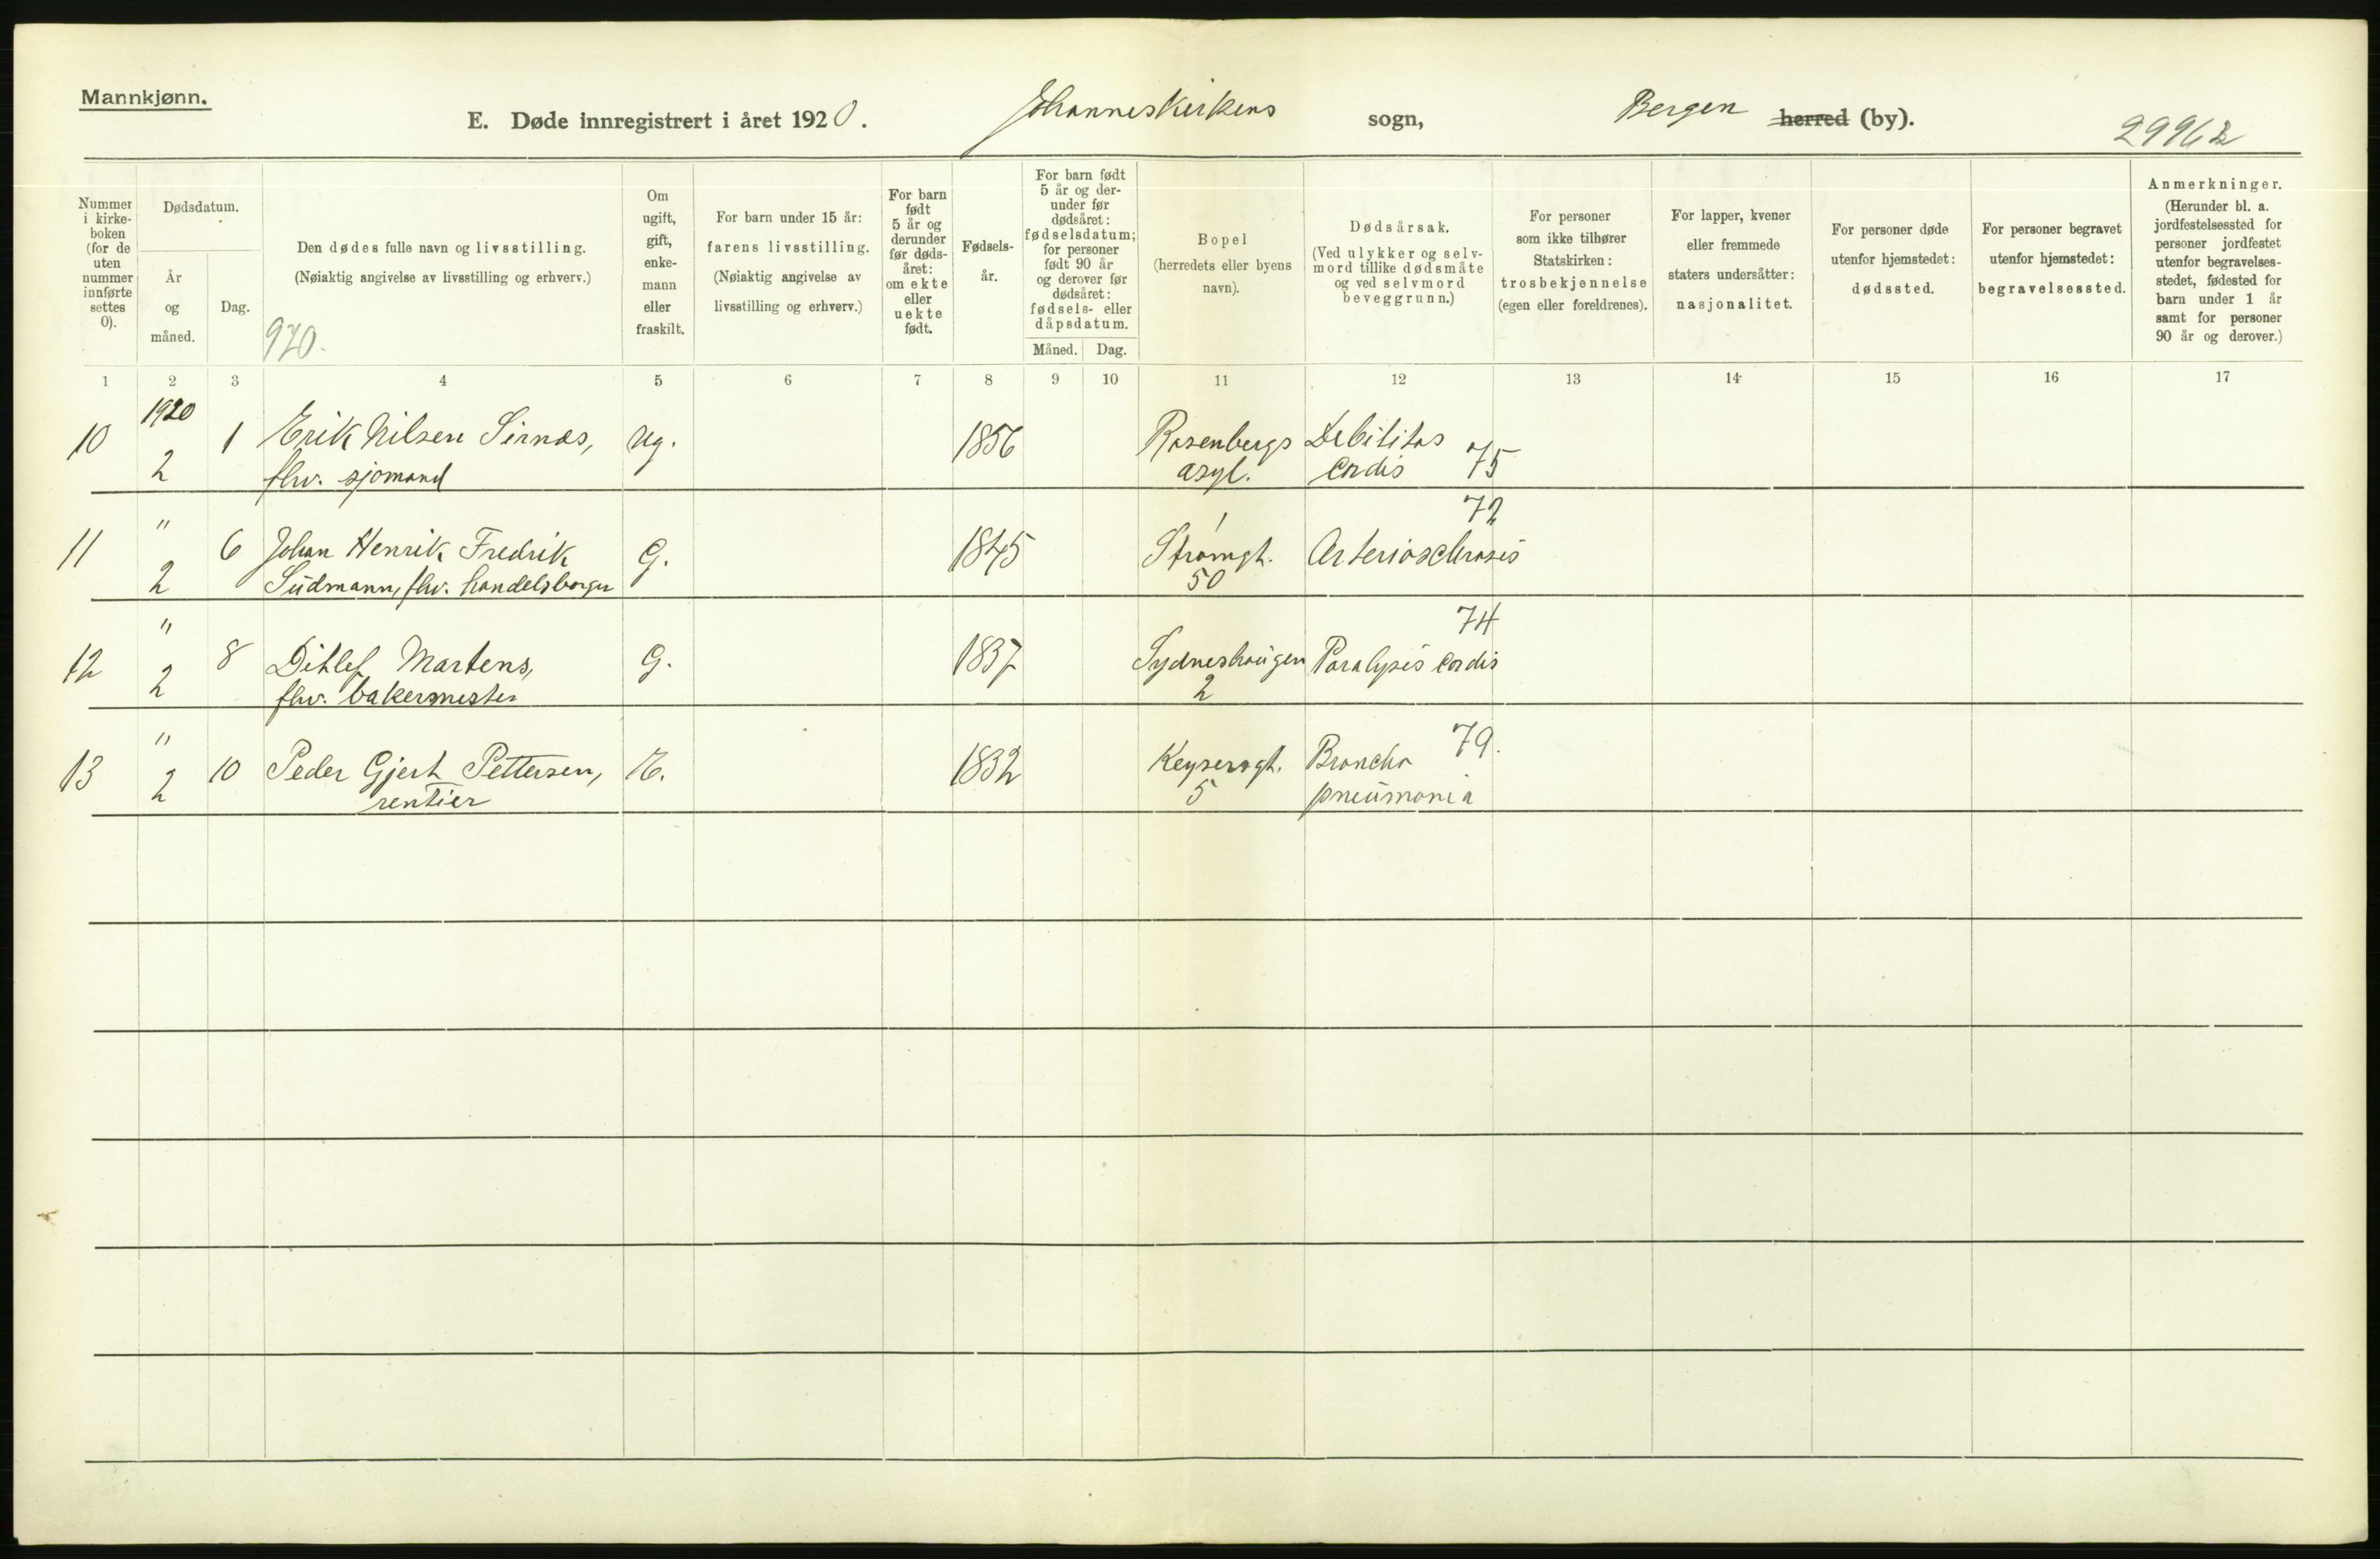 Mannkjønn.
E. Døde innregistrert i året 1920. Johanneskirkens sogn, Bergen herred (by).
2996 b
Nummer i kirke-boken (for de uten nummer innførte settes 0).
Dødsdatum.
År og måned.
Dag.
Den dødes fulle navn og livsstilling.
(Nøiaktig angivelse av livsstilling og erhverv.)
970.
Om ugift, gift, enke-mann eller fraskilt.
For barn under 15 år:
farens livsstilling.
(Nøiaktig angivelse av livsstilling og erhverv.)
For barn født 5 år og derunder før døds-året: om ekte eller uekte født.
Fødsels-år.
For barn født 5 år og der-under før dødsåret: fødselsdatum; for personer født 90 år og derover før dødsåret: fødsels- eller dåpsdatum.
Måned. Dag.
Bopel
(herredets eller byens navn).
Dødsårsak.
(Ved ulykker og selv-mord tillike dødsmåte og ved selvmord beveggrunn.)
For personer som ikke tilhører Statskirken:
trosbekjennelse
(egen eller foreldrenes).
For lapper, kvener eller fremmede staters undersåtter:
nasjonalitet.
For personer døde utenfor hjemstedet:
dødssted.
For personer begravet utenfor hjemstedet:
begravelsessted.
Anmerkninger.
(Herunder bl. a. jordfestelsessted for personer jordfestet utenfor begravelses-stedet, fødested for barn under 1 år samt for personer 90 år og derover.)
1 2 3 4 5 6 7 8 9 10 11 12 13 14 15 16 17
1920
10 2 1 Erik Nilsen Sirnæs, ug. 1856 Rosenbergs Debilitas
fhv. sjømand asyl. cordis 75
72
11 " 2 6 Johan Henrik Fredrik G. 1845 Strømgt. Arteriosclerosis
Südmann, fhv. handelsborger 50
74
12 " 2 8 Ditlef Martens, G. 1837 Sydneshaugen Paralysis cordis
fhv. bakermester 2
13 " 2 10 Peder Gjert Pettersen, E. 1832 Keysersgt. Broncho 79.
rentier 5 pneumonia